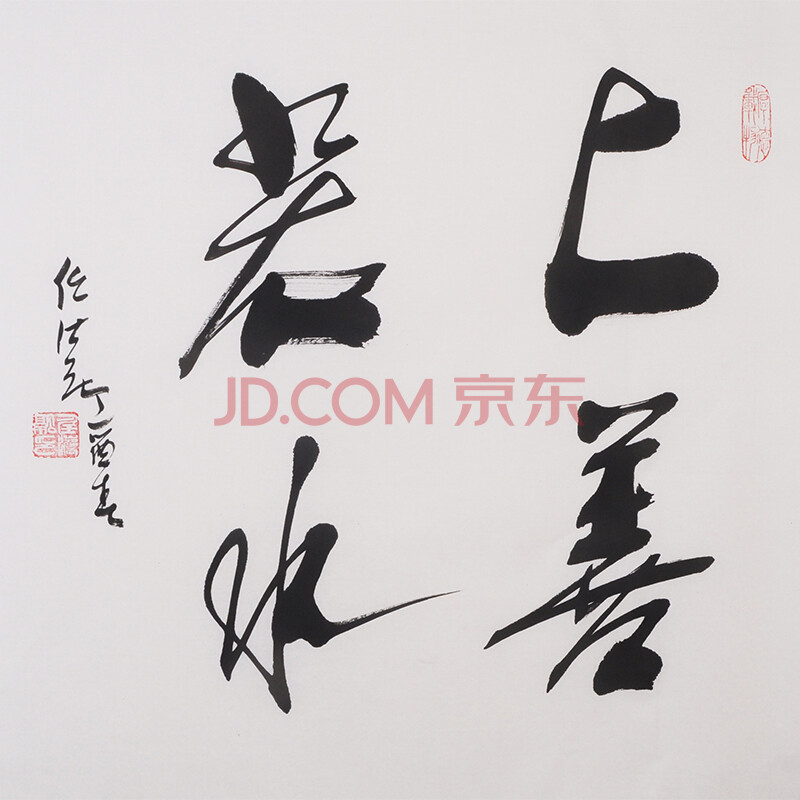 上善
若水
丁酉春
JD.COM 京东